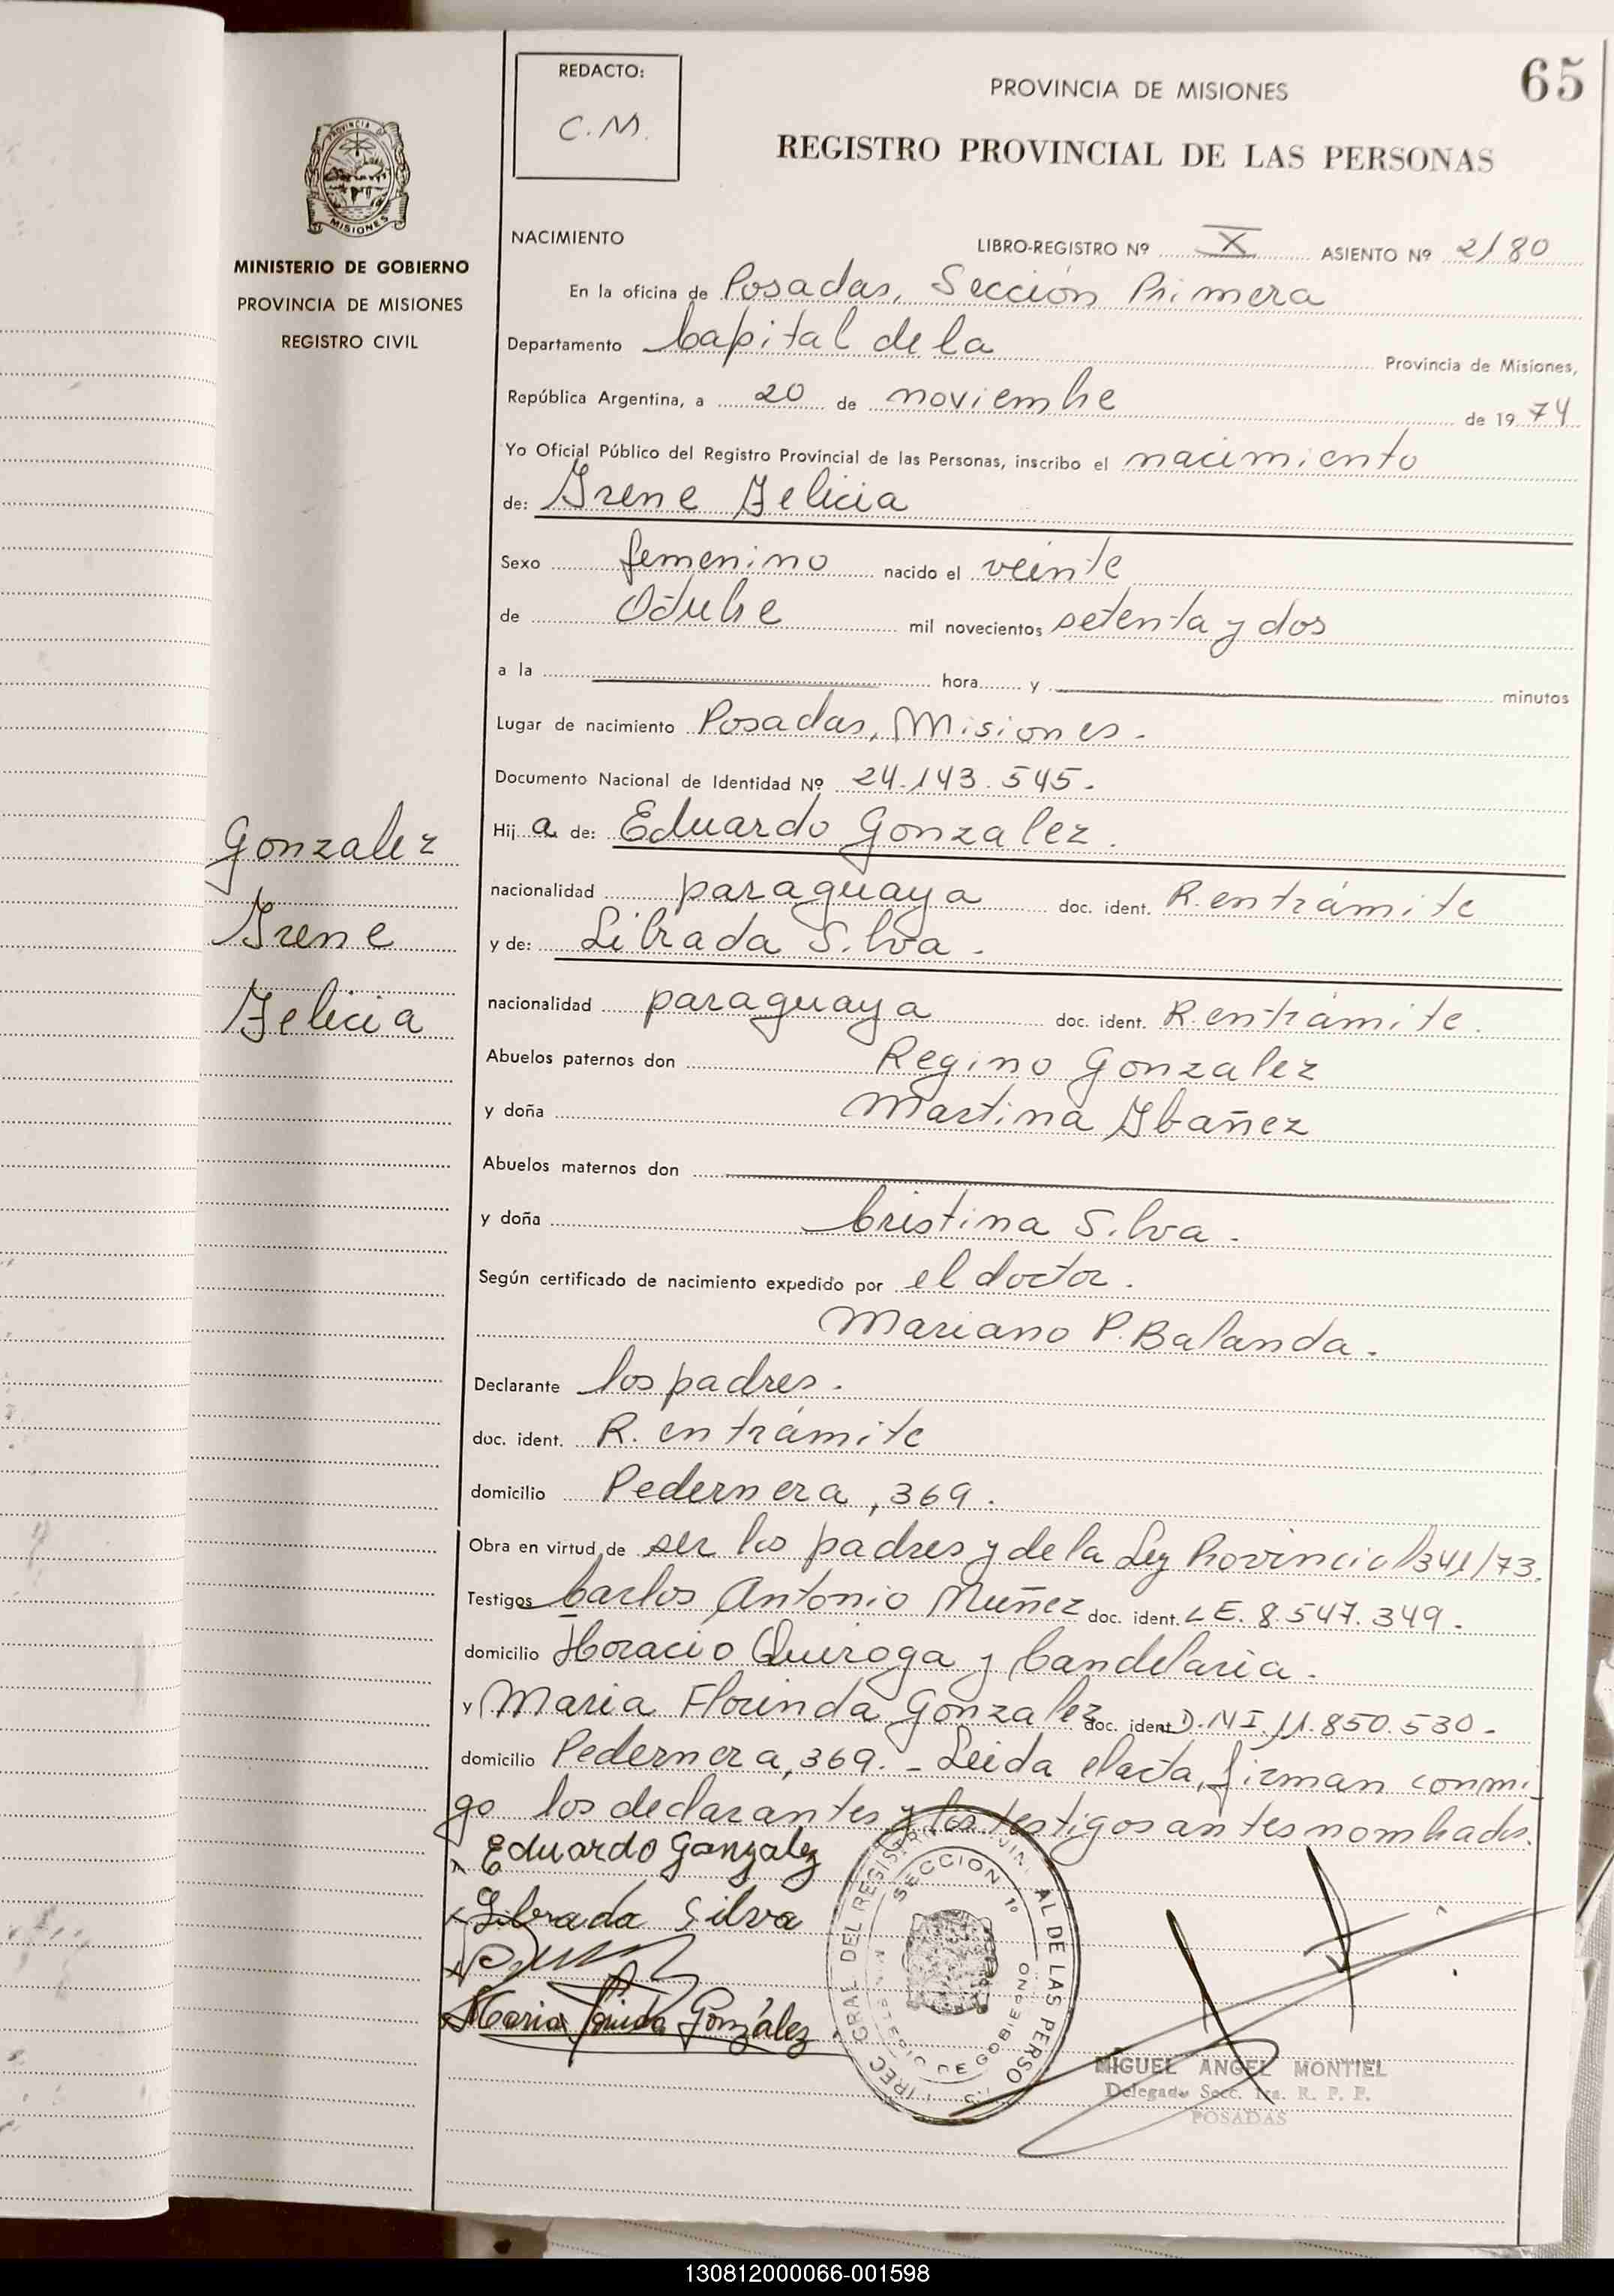 65
REDACTO:
C.M.
PROVINCIA DE MISIONES
REGISTRO PROVINCIAL DE LAS PERSONAS
PROVINCIA DE
MISIONES
MINISTERIO DE GOBIERNO
PROVINCIA DE MISIONES
REGISTRO CIVIL
NACIMIENTO
LIBRO-REGISTRO Nº X ASIENTO Nº 2180
En la oficina de Posadas, Sección Primera
Departamento Capital de la Provincia de Misiones,
República Argentina, a 20 de noviembre de 1974
Yo Oficial Público del Registro Provincial de las Personas, inscribo el nacimiento
de: Irene Felicia
Sexo femenino nacido el veinte
de Octubre mil novecientos setenta y dos
a la hora y minutos
Lugar de nacimiento Posadas, Misiones.
Documento Nacional de Identidad Nº 24.143.545.
Hija de: Eduardo Gonzalez.
nacionalidad paraguaya doc. ident. R. en trámite
y de: Librada Silva.
nacionalidad paraguaya doc. ident. R. en trámite.
Abuelos paternos don Regino Gonzalez
y doña Martina Ibañez
Abuelos maternos don
y doña Cristina Silva.
Según certificado de nacimiento expedido por el doctor.
Mariano P. Balanda.
Declarante los padres.
doc. ident. R. en trámite
domicilio Pedernera, 369.
Obra en virtud de ser los padres y de la Ley Provincial 341/73.
Testigos Carlos Antonio Muñez doc. ident. LE. 8.547.349.
domicilio Horacio Quiroga y Candelaria.
y Maria Florinda Gonzalez doc. ident D.N I. 11.850.530-
domicilio Pedernera, 369. - Leida el acta, firman conmi-
go los declarantes y los testigos antes nombrados.
Gonzalez
Irene
Felicia
Eduardo Gonzalez
Librada Silva
Maria González
SECCION 1º
MIGUEL ANGEL MONTIEL
Delegado Secc. 1ra. R. P. P.
POSADAS
130812000066-001598